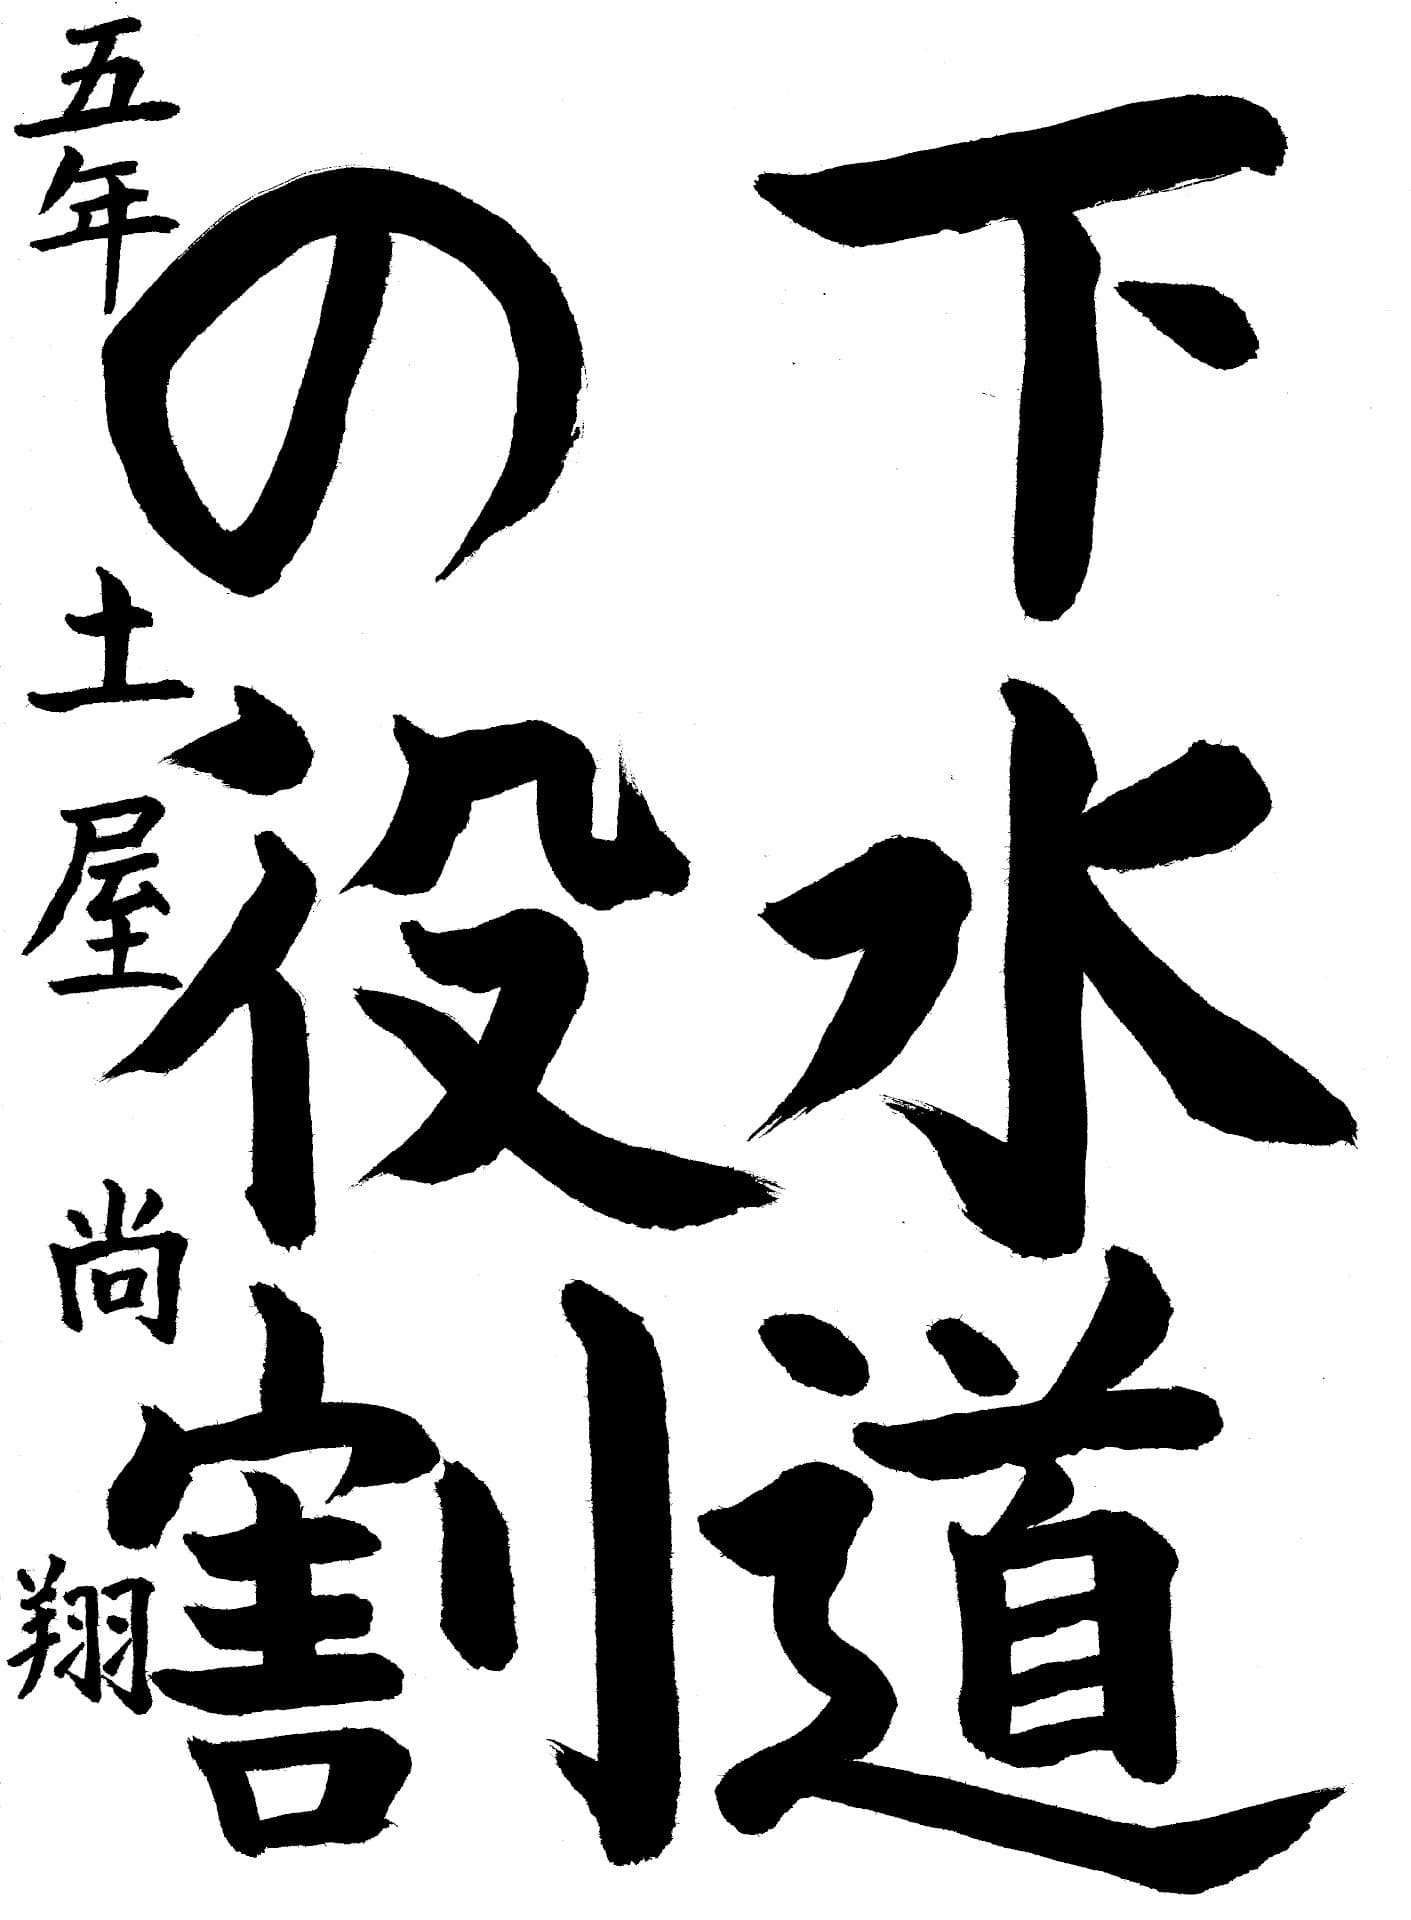 下水道
の役割
五年 土屋 尚翔